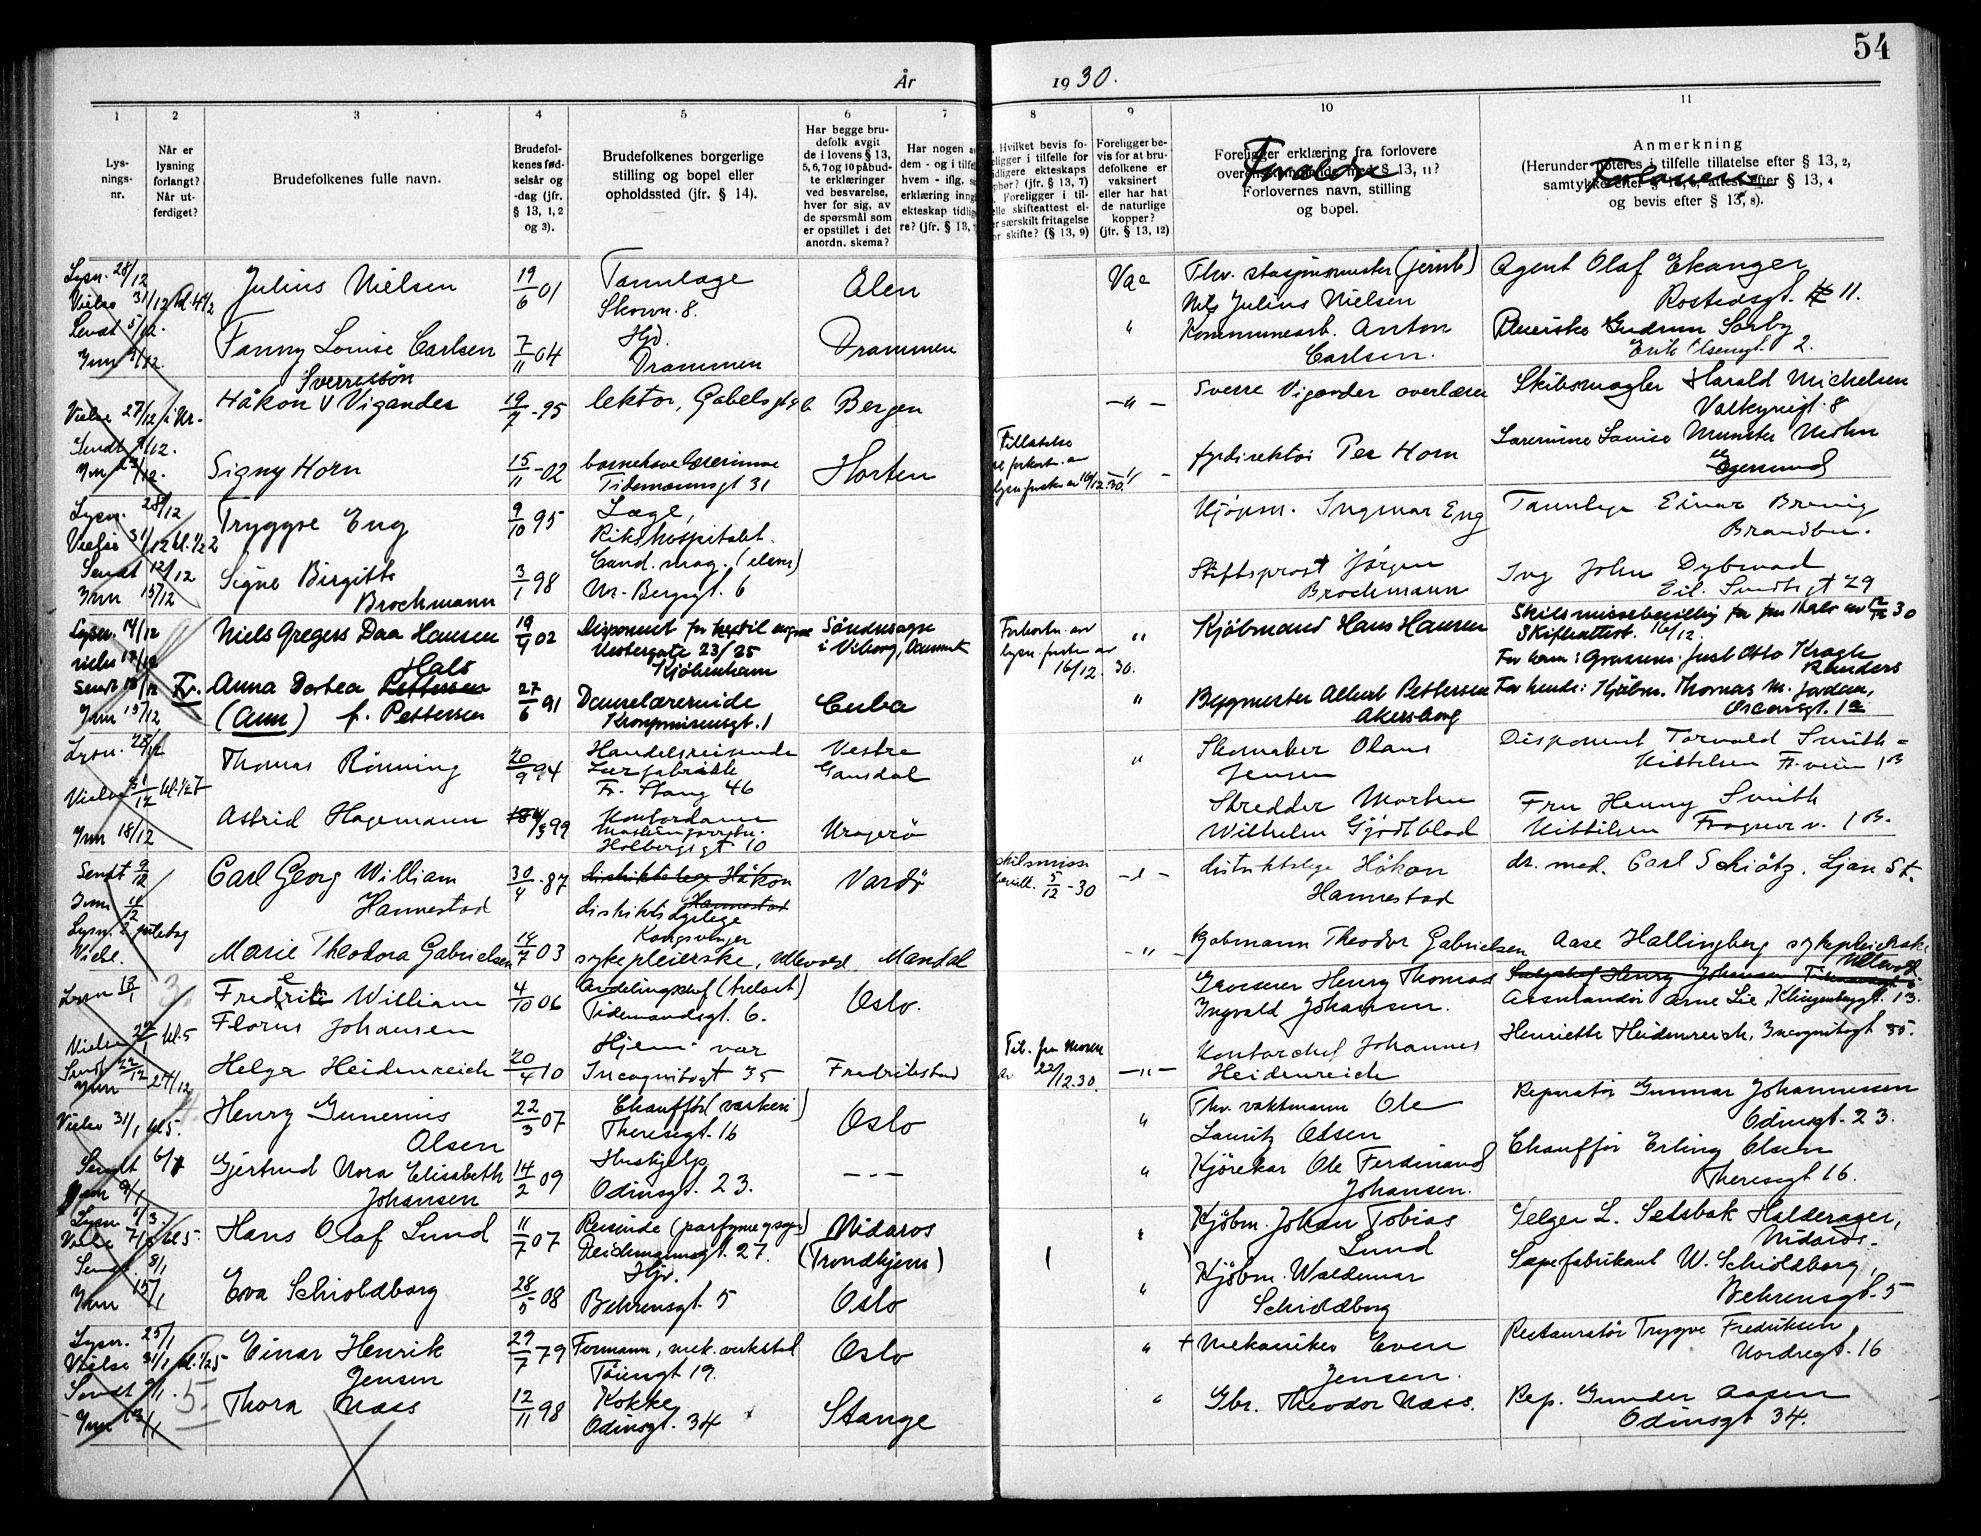 54
År 1930.
1 2 3 4 5 6 7 8 9 10 11
Lys-
nings-
nr.
Når er
lysning
forlangt?
Når ut-
ferdiget?
Brudefolkenes fulle navn.
Brudefol-
kenes fød-
selsår og
-dag (jfr.
§ 13, 1, 2
og 3).
Brudefolkenes borgerlige
stilling og bopel eller
opholdssted (jfr. § 14).
Har begge bru-
defolk avgit
de i lovens § 13,
5, 6, 7 og 10 påbud-
te erklæringer
ved besvarelse,
hver for sig, av
de spørsmål som
er opstillet i det
anordn. skema?
Har nogen a
dem - og i tilfe
hvem - iflg.
erklæring inng
ekteskap tidlig
re? (jfr. § 13,
Hvilket bevis fo-
eligger i tilfelle for
idligere ekteskaps
phør? (jfr. § 13, 7)
Foreligger i til-
elle skifteattest el-
er særskilt fritagelse
or skifte? (§ 13, 9)
Foreligger be-
vis for at bru-
defolkene er
vaksinert
eller har hat
de naturlige
kopper?
(jfr. § 13, 12)
Foreligger erklæring fra forlovere
overensstemmende med § 13, 11?
Forlovernes navn, stilling
og bopel.
Forældre
Anmerkning
(Herunder noteres i tilfelle tillatelse efter § 13, 2,
samtykke efter § attest efter § 13, 4
og bevis efter § 13, 8).
Forlovere
Lysn. 28/12 Julius Nielsen 19/6 01 Tannlæge Ålen Vac Thv. stasjonsmester (jernb) Agent Olaf Ekanger
Vielse 31/12 kl. 4 1/2 Skovv. 8. Nils Julius Nielsen Rostedsgt. 11.
Sendt 5/12. Fanny Louise Carlsen 7/11 04 Hjv. Drammen " Kommunearb. Anton Pleierske Gudrun Sørby
Inn 9/12 Drammen Carlsen. Erik Olsensgt. 2.
Sverressøn
Vielse 27/12 i Ur- Håkon V Vigander 19/7-95 lektor, Gabelsgt Bergen -"- Sverre Vigander overlærer Skibsmægler Harald Michelsen
Valkyrigt. 8
Sendt 9/12. Tillatelse
Inn /12. Signy Horn 15/11-02 barnehavelærerinne Horten fyrdirektør Per Horn Lærerinne Louise Munster Mohn
Tidemannsgt 31 Egersund
Lysn. 28/12 Tryggve Eng 9/10 95 Læge, Kjøpm. Ingmar Eng Tannlæge Einar Breivig
Vielse 31/12 kl. 1/2 2 Rikshospitalet. Brandbu.
Sendt 12/12 Signe Birgitte 3/1 98 Cand. mag. (elem) Stiftsprost Jørgen Ing John Dybwad
Inn 15/12 Brochmann Nr. Bergsgt. 6 Brochmann Eil. Sundtsgt 29
Lysn. 14/12 Niels Gregers Daa Hansen 19/9 02 Disponent for textil engros Søndersogn Forkortn. av " Kjøbmand Hans Hansen Skilsmissebevilling fra 30
Vestergate 23/25 i Viborg, Danmark lysn. fristen av Skifteattest. 16/12.
Kjøbenhavn 16/12 30. For ham: Grosserer Just Otto Kragh
Hals Randers
Fr. Anna Dortea Pettersen 27/6 91 Danselærerinde Cuba " Byggmester Albert Pettersen For hende: Kjøbm. Thomas M. Jordan,
Inn 15/12 (Ann) f. Pettersen Kronprinsensgt. 1 Akersborg Oscarsgt. 1a
Lysn. 28/12 Thomas Rønning 20/9 94 Handelsreisende Vestre " Skomaker Olaus Disponent Torvald Smith-
Lærfabrikk Gausdal Jensen Kittelsen Fr. veien 1B
Fr. Stang 46
Astrid Hagemann 4/3 99 Kontordame Kragerø Skredder Morten Fru Henny Smith
Inn 18/12 Holbergsgt 10 Wilhelm Gjødtblad Kittilsen Frogner v. 1B.
Sendt 9/12 Carl Georg William 30/4-87 distriktslæge Håkon Vardø skilsmisse -"- distriktslæge Håkon dr. med. Carl Schiøtz. Ljan St.
Inn Hannestad Hannestad bevill. 5/12-30 Hannestad
distriktslæge
Lysn. 2 juledag Kongsvinger
Viel. Marie Theodora Gabrielsen 14/7 03 sykepleierske, Ullevold. Mandal -"- Kjøbmann Theodor Gabrielsen Aase Hallingberg sykepleierske
Ullevold
Lysn 18/1 Fredrik William 4/10 06 Avdelingschef (trelast) Oslo. Grosserer Henry Thomas Henry Johansen
Florus Johansen Tidemandsgt. 6. Ingvald Johansen. Assurandør Arne Lie, Klingenberggt. 13.
Vielse kl. 5 Hjem. vær Til. fra Moren
Sendt 22/12 Helga Heidenreich 20/4 10 Incognitogt 35 Fredrikstad av 22/12.30. -"- Kontorchef Johannes Henriette Heidenreich, Incognitogt 35.
Inn 27/12 Heidenreich
Vielse 31/1 kl. 5. Henry Gunerius 22/3 07 Chauffør Oslo " Thv. vaktmann Ole Reparatør Gunnar Johannessen
Olsen Theresegt. 16 Lauritz Olsen Odinsgt. 23.
Sendt 6/1 Gjertrud Nora Elisabeth 14/2 09 Hushjelp --- " Kjørekar Ole Ferdinand Chauffør Erling Olsen
Inn 9/1 Johansen Odinsgt. 23. Johansen. Theresegt 16.
Lysn. 1/3. Hans Olaf Lund 11/7 07 Reisende Nidaros " Kjøbm. Johan Tobias Selger L. Setsbak Halderager,
Vielse kl 5. 27. (Trondhjem) Lund Nidaros.
Sendt. 8/1 Eva Schioldborg 28/5 08 Hjv. Oslo " Kjøbm. Waldemar Såpefabrikant W. Schioldborg,
Inn 15/1 Behrensgt. 5 Schioldborg Behrensgt. 5
Lysn. 25/1 Einar Henrik 29/7 79 Formann, mek. verksted Oslo " + Mekaniker Even Restauratør Trygve Fredriksen
Vielse 31/1 kl. 1/2 5 Jensen Tøiengt 19. Jensen. Nordregt. 16
Sendt 9/1. 5. Thora Næss 12/11 98 Kokke Stange " Gbr. Theodor Næss. Rep. Gunder Aasen
Inn 13/1 Odinsgt. 34 Odinsgt 34.